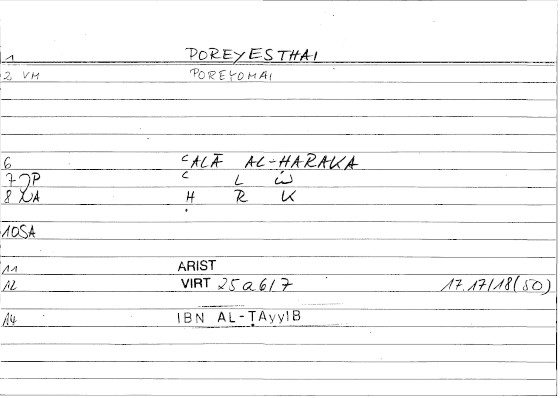 1 POREYESTHAI
2 VM POREYOMAI
6 ᶜALĀ AL-ḤARAKA
7 P ᶜ L W
8 A Ḥ R K
10SA
11 ARIST
12 VIRT 25a6/7 17.17/18(50)
14 IBN AL-ṬAyyIB